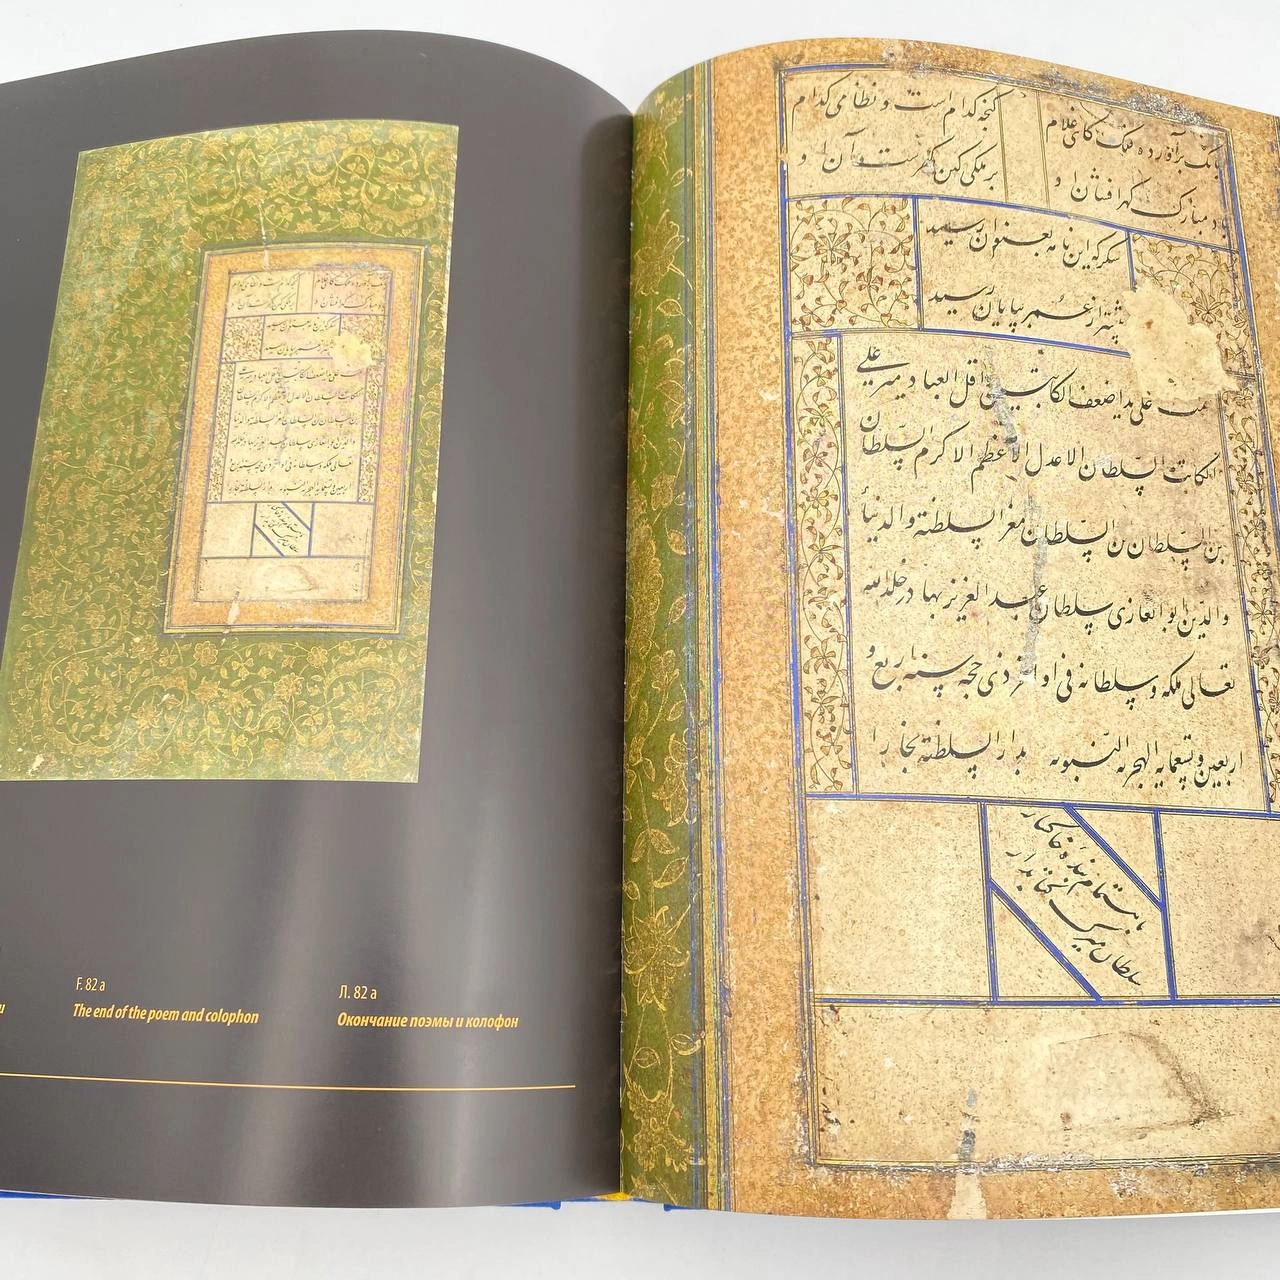 F. 82 a
The end of the poem and colophon
Л. 82 а
Окончание поэмы и колофон
بانک برآورده فلک کای غلام کنجه کدام است و نظامی کدام
باد مبارک کهرافشان او بر ملکی کین کهرست آن او
شکر که این نامه بعنوان رسید
پیشتر از عمر بپایان رسید
علی ید اضعف الکاتبین و اقل العباد میر علی
الکاتب السلطان الاعدل الاعظم الاکرم السلطان
بن السلطان بن السلطان معز السلطنة والدنیا
والدین ابو الغازی سلطان عبد العزیز بهادر خلد الله
تعالی ملکه و سلطانه فی اواخر ذی حجه سنه اربع و
اربعین و تسعمایه الهجریه النبویه بدار السلطنة بخارا
باهتمام بنده خاکسار
سلطان میرک کتابدار